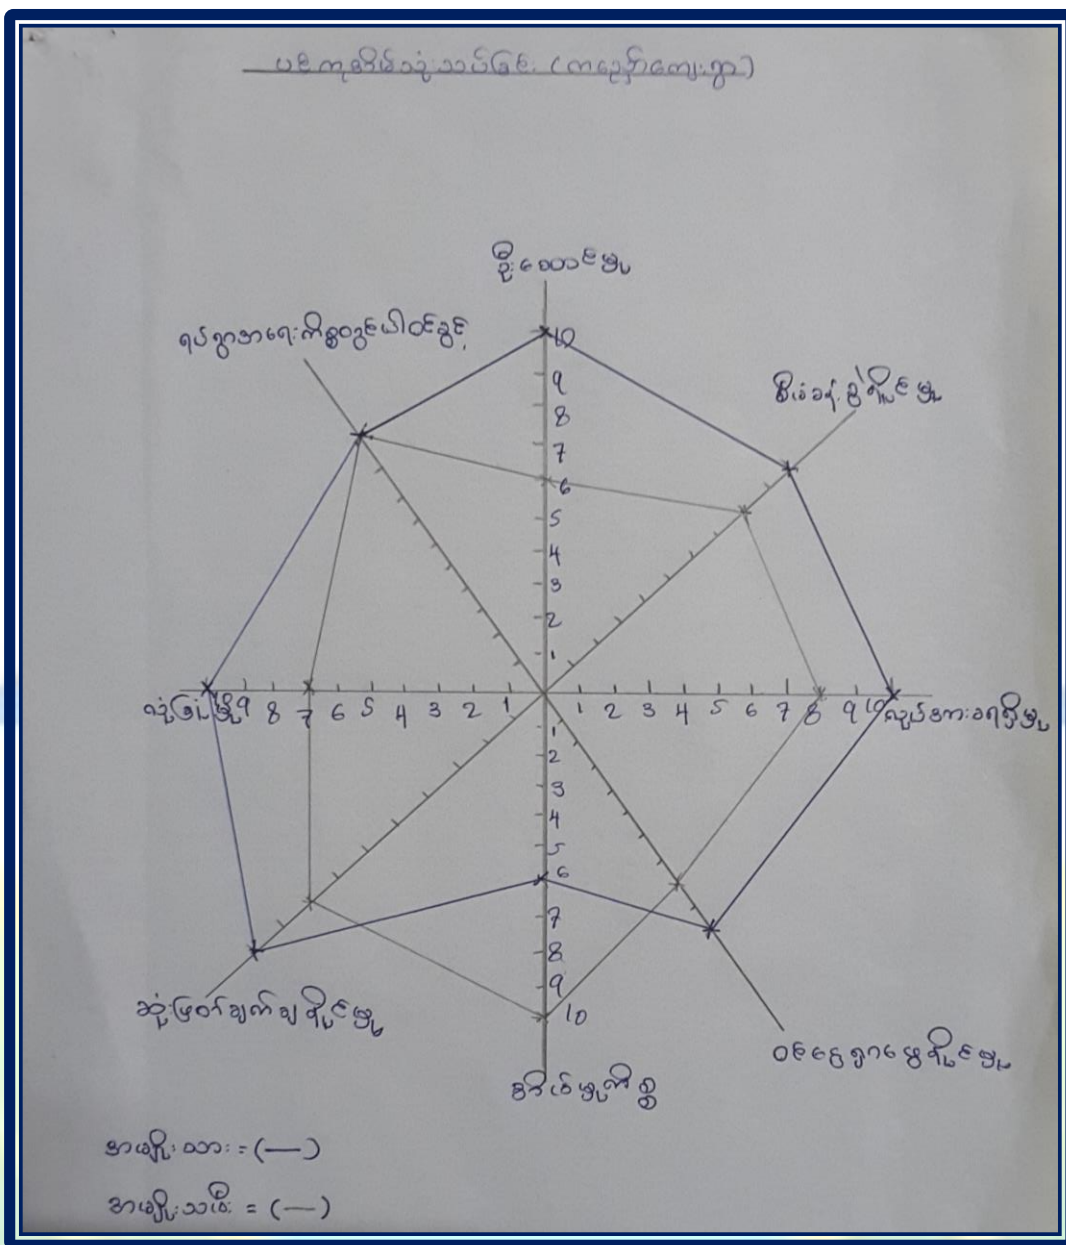 ပင့်ကူအိမ်သုံးသပ်ခြင်း (ကညှော်ကျေးရွာ)
ဦးဆောင်မှု
ရပ်ရွာအရေးကိစ္စတွင်ပါဝင်ခွင့်
စီမံခန့်ခွဲနိုင်မှု
10
9
8
7
6
5
4
3
2
1
လုံခြုံမှု
9 8 7 6 5 4 3 2 1 1 2 3 4 5 6 7 8 9 10
လှုပ်ရှားရရှိမှု
1
2
3
4
5
6
7
8
9
10
ဆုံးဖြတ်ချက်ချနိုင်မှု
ဝင်ငွေရှာဖွေနိုင်မှု
အိမ်မှုကိစ္စ
အမျိုးသား = (—)
အမျိုးသမီး = (—)